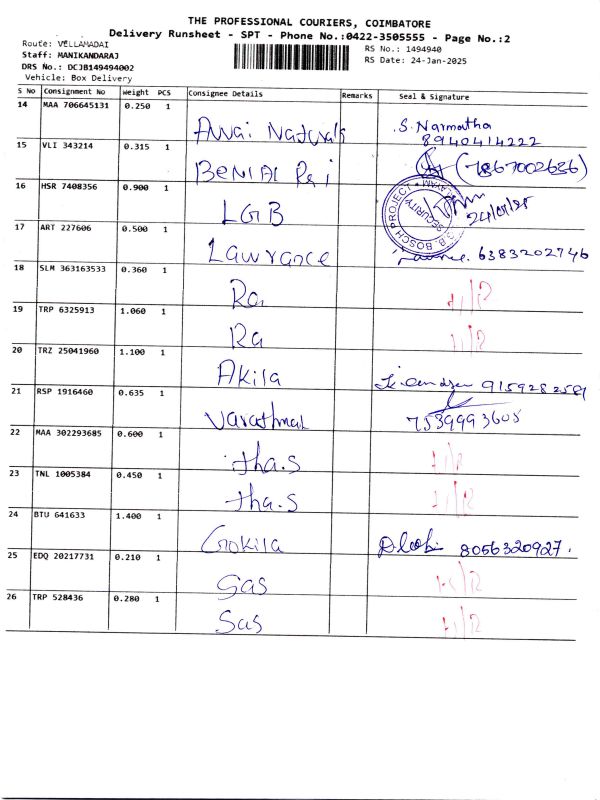 THE PROFESSIONAL COURIERS, COIMBATORE
Delivery Runsheet - SPT - Phone No.:0422-3505555 - Page No.:2
Route: VELLAMADAI
Staff: MANIKANDARAJ
DRS No.: DCJB149494002
Vehicle: Box Delivery
RS No.: 1494940
RS Date: 24-Jan-2025
S No Consignment No Weight PCS Consignee Details Remarks Seal & Signature
14 MAA 706645131 0.250 1 Naturals S. Narmatha
8940414222
15 VLI 343214 0.315 1 (7867002636)
16 HSR 7408356 0.900 1 LGB BOSCH PROJECT SECURITY 24/01/25
17 ART 227606 0.500 1 Lawrance 6383202746
18 SLM 363163533 0.360 1
19 TRP 6325913 1.060 1 Ra
20 TRZ 25041960 1.100 1 Akila 9159282581
21 RSP 1916460 0.635 1 Varathmal 7539993605
22 MAA 302293685 0.600 1 tha.s
23 TNL 1005384 0.450 1 tha.s
24 BTU 641633 1.400 1 Gokila 8056320927.
25 EDQ 20217731 0.210 1 Sas
26 TRP 528436 0.280 1 Sas